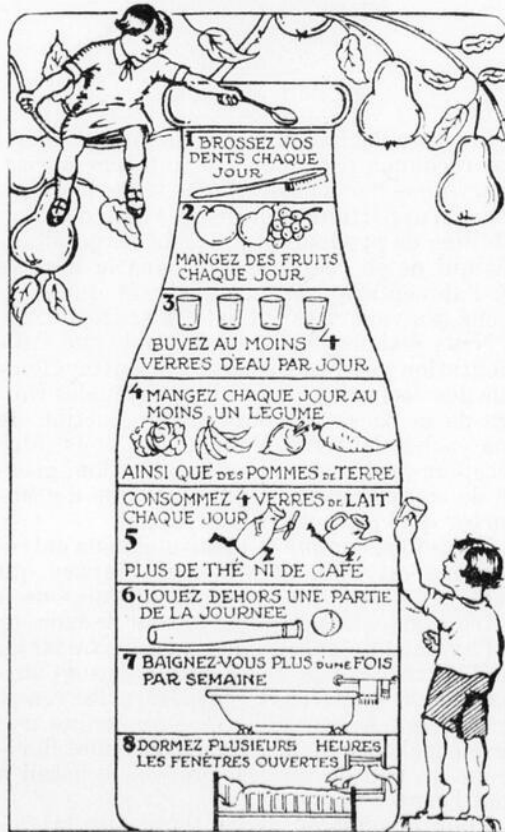 1 BROSSEZ VOS
DENTS CHAQUE
JOUR
2
MANGEZ DES FRUITS
CHAQUE JOUR
3
BUVEZ AU MOINS 4
VERRES D'EAU PAR JOUR
4 MANGEZ CHAQUE JOUR AU
MOINS UN LEGUME
AINSI QUE DES POMMES DE TERRE
CONSOMMEZ 4 VERRES DE LAIT
CHAQUE JOUR
5
PLUS DE THÉ NI DE CAFE
6 JOUEZ DEHORS UNE PARTIE
DE LA JOURNEE
7 BAIGNEZ-VOUS PLUS D'UNE FOIS
PAR SEMAINE
8 DORMEZ PLUSIEURS HEURES
LES FENÊTRES OUVERTES